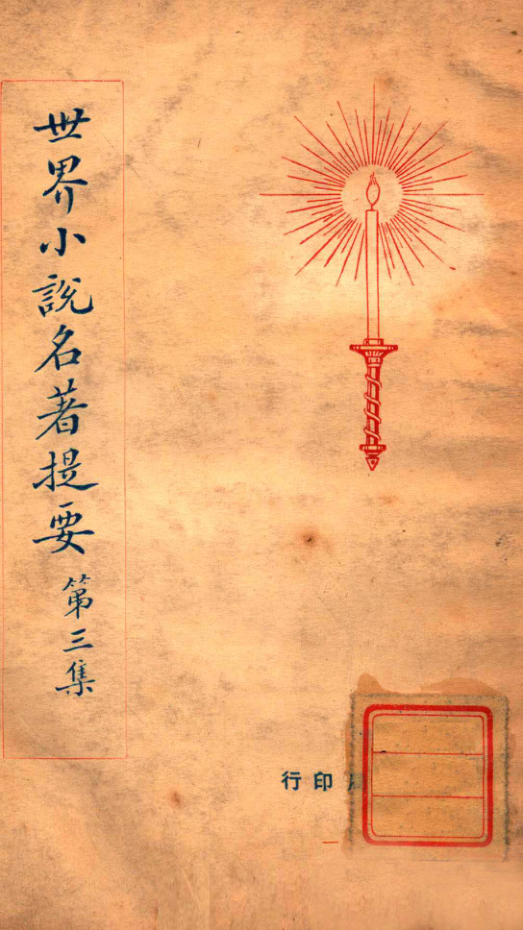 世界小說名著提要
第三集
印行